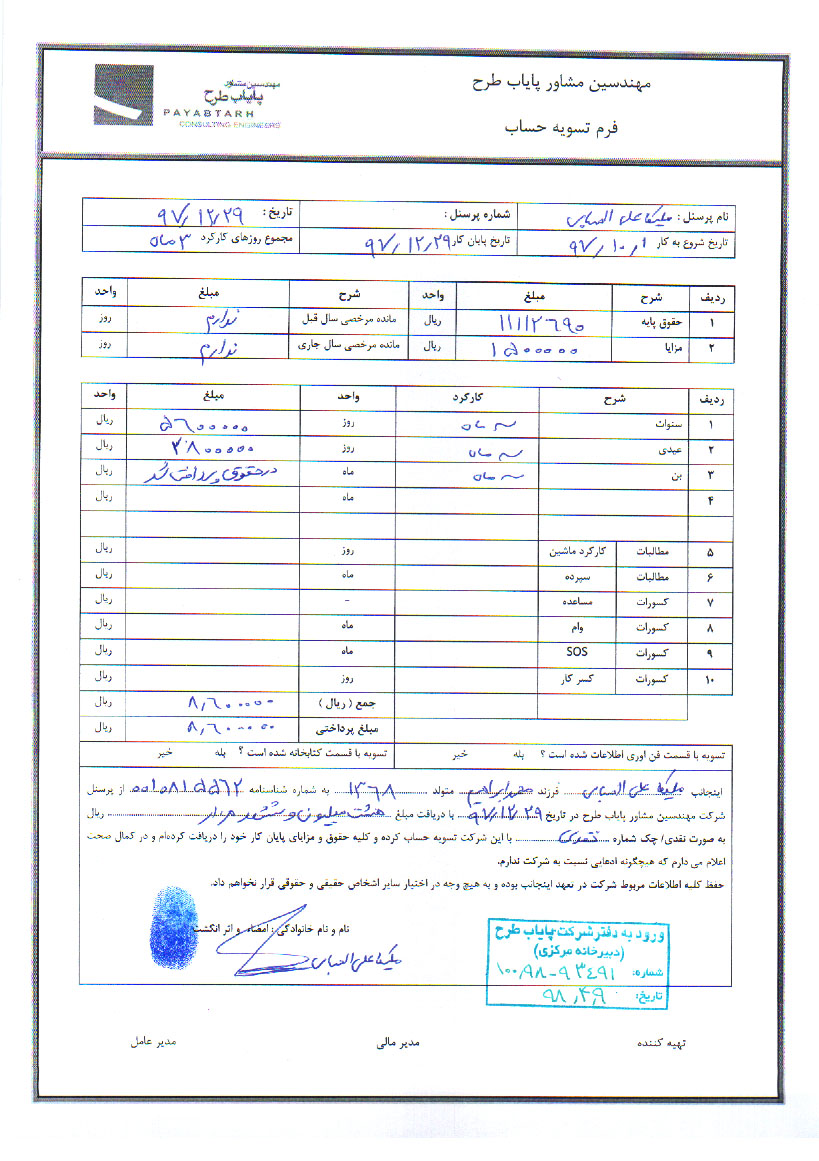 مهندسین مشاور پایاب طرح
فرم تسویه حساب
مهندسین مشاور
پایاب طرح
PAYABTARH
CONSULTING ENGINEERS
نام پرسنل : ملیکا علی العباسی شماره پرسنل : تاریخ : ۹۷/۱۲/۲۹
تاریخ شروع به کار ۹۷/۱۰/۱ تاریخ پایان کار ۹۷/۱۲/۲۹ مجموع روزهای کارکرد ۳ ماه
ردیف شرح مبلغ واحد شرح مبلغ واحد
۱ حقوق پایه ۱۱۱۱۲۶۹۰ ریال مانده مرخصی سال قبل ندارم روز
۲ مزایا ۱۵۰۰۰۰۰ ریال مانده مرخصی سال جاری ندارم روز
ردیف شرح کارکرد واحد مبلغ واحد
۱ سنوات سه ماه روز ۵۶۰۰۰۰۰ ریال
۲ عیدی سه ماه روز ۳۸۰۰۰۰۰ ریال
۳ بن سه ماه ماه در حقوق پرداخت شد ریال
۴ ماه ریال
۵ مطالبات کارکرد ماشین روز ریال
۶ مطالبات سپرده ماه ریال
۷ کسورات مساعده - ریال
۸ کسورات وام ماه ریال
۹ کسورات SOS ماه ریال
۱۰ کسورات کسر کار روز ریال
جمع ( ریال ) ۸,۶۰۰۰۰۰ ریال
مبلغ پرداختی ۸,۶۰۰۰۰۰ ریال
تسویه با قسمت فن اوری اطلاعات شده است ؟ بله خیر تسویه با قسمت کتابخانه شده است ؟ بله خیر
اینجانب ملیکا علی العباسی فرزند محمدابراهیم متولد ۱۳۶۸ به شماره شناسنامه ۰۰۱۰۸۱۵۵۶۲ از پرسنل
شرکت مهندسین مشاور پایاب طرح در تاریخ ۹۷/۱۲/۲۹ با دریافت مبلغ هشت میلیون و ششصد هزار ریال
به صورت نقدی/ چک شماره نقدی با این شرکت تسویه حساب کرده و کلیه حقوق و مزایای پایان کار خود را دریافت کرده‌ام و در کمال صحت
اعلام می دارم که هیچگونه ادعایی نسبت به شرکت ندارم.
حفظ کلیه اطلاعات مربوط شرکت در تعهد اینجانب بوده و به هیچ وجه در اختیار سایر اشخاص حقیقی و حقوقی قرار نخواهم داد.
نام و نام خانوادگی : امضاء و اثر انگشت
ملیکا علی العباسی
ورود به دفتر شرکت پایاب طرح
(دبیرخانه مرکزی)
شماره: ۱۰۰/۹۸-۹۳۴۹۱
تاریخ: ۹۸/۴/۹
تهیه کننده مدیر مالی مدیر عامل